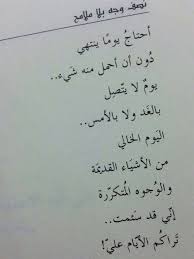 نصف وجه بلا ملامح
أحتاجُ يومًا ينتهي
دُون أن أحمل منه شَيء..
يومٌ لا يتّصِل
بالغَد ولا بالأمس..
اليَوم الخالي
من الأشيَاء القديمَة
والوجوه المُتكرّرة
إنّي قد سئمت..
تَراكُم الأيّام عليّ!